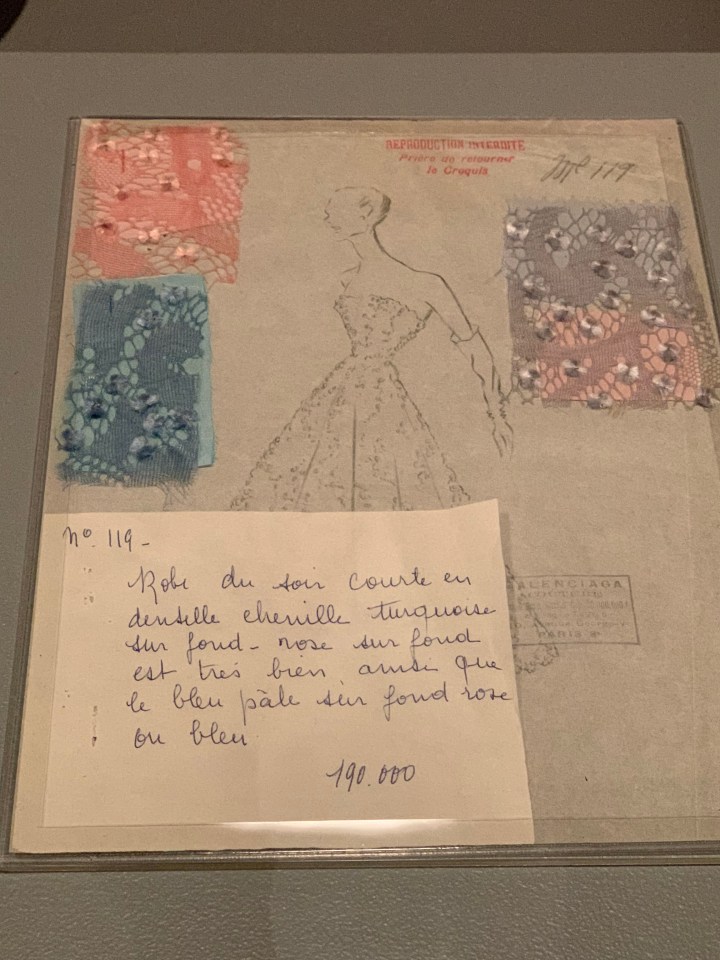 REPRODUCTION INTERDITE
Prière de retourner
le Croquis
Nº 119
Nº. 119 -
Robe du soir courte en
dentelle chenille turquoise
sur fond - rose sur fond
est très bien ainsi que
le bleu pâle sur fond rose
ou bleu
190.000
ALENCIAGA
PARIS 8e